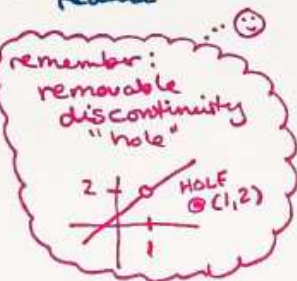 remember:
removable
discontinuity
"hole"
2
HOLE
@ (1,2)
1